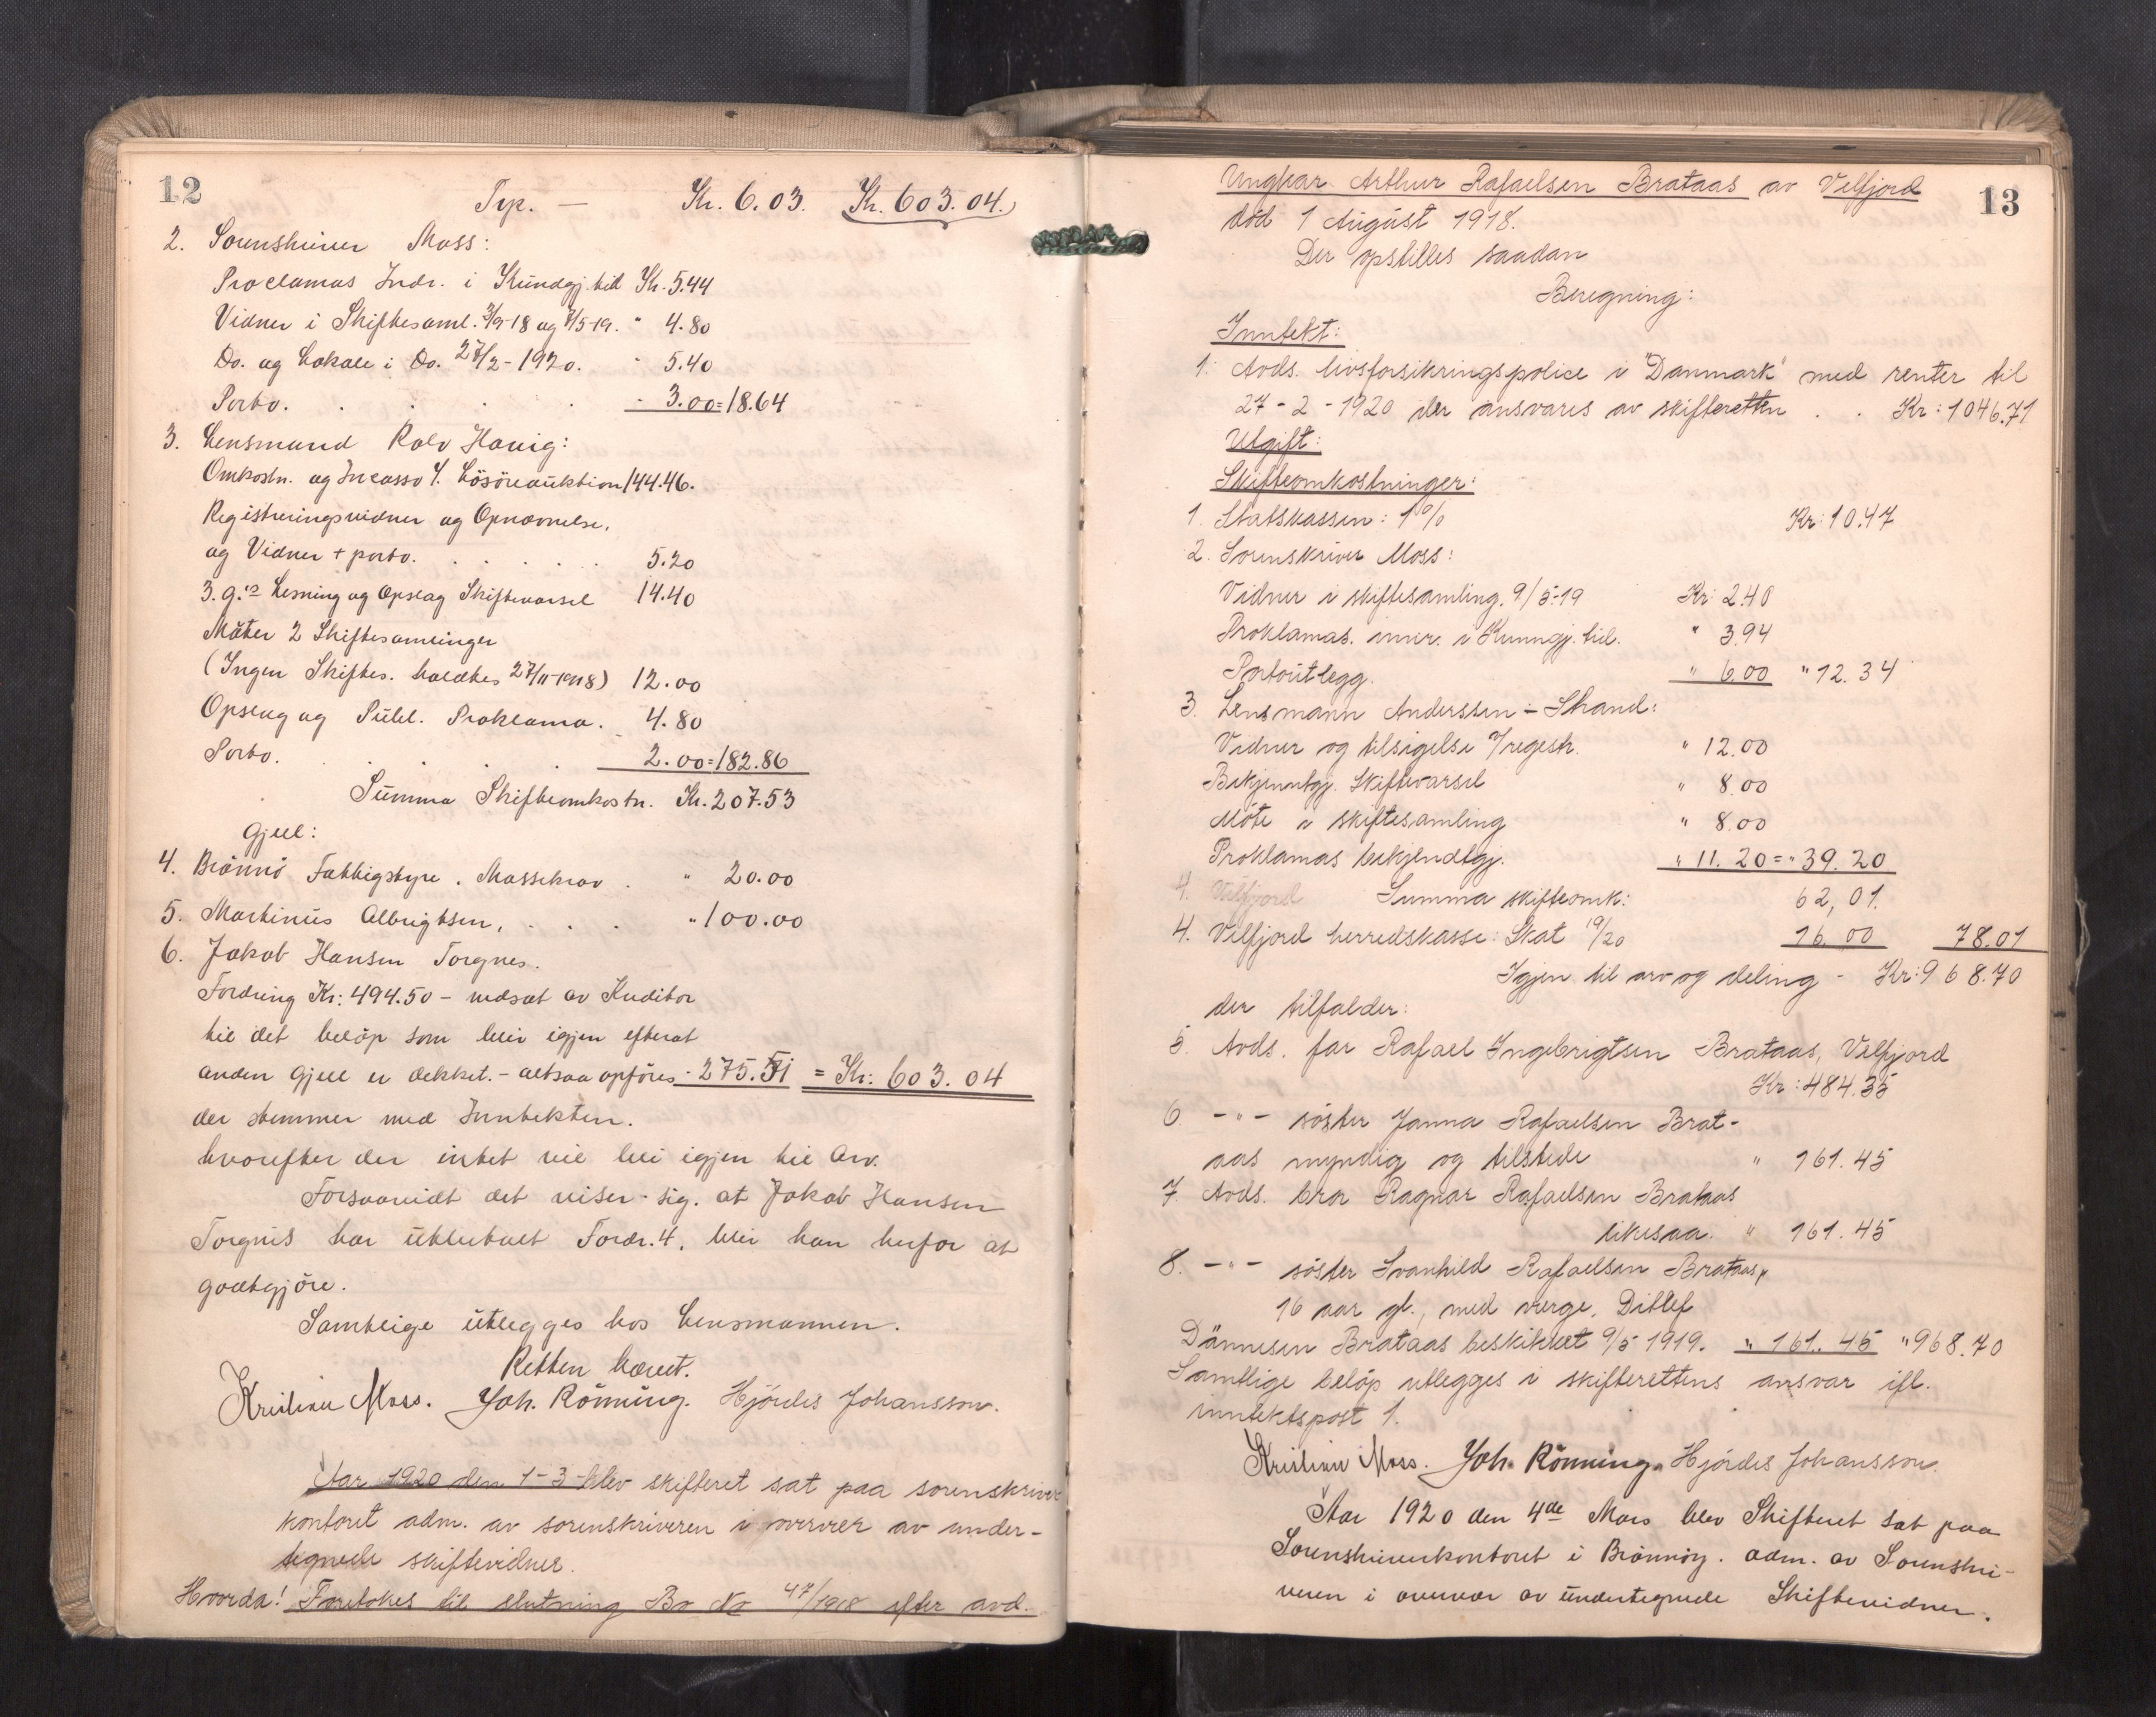 12
Trp. — Kr. 6.03. Kr. 603.04.
2. Sorenskriver Moss:
Proclamas Indr. i Kundgj. tid Kr. 5.44
Vidner i Skiftesaml. 3/9-18 og 9/5-19. " 4.80
Do. og Lokale i Do. 27/2-1920. " 5.40
Porto. . . . . " 3.00 = 18.64
3. Lensmand Rolv Havig:
Omkostn. og Incasso f. Lösöreauktion 144.46.
Registreringsvidner og Opnævnelse,
og Vidner + porto. . . . . . 5.20
3. g.'s Lesning og Opslag Skiftevarsel 14.40
Möter 2 Skiftesamlinger
(Ingen Skiftes. holdtes 27/11-1918) 12.00
Opslag og Publ. Proklama. 4.80
Porto. . . . . 2.00 = 182.86
Summa Skifteomkostn. Kr. 207.53
Gjeld:
4. Brönnö Fattigstyre. Massekrav . " 20.00
5. Martinus Albrigtsen, . . . " 100.00
6. Jakob Hansen Torgnes.
Fordring Kr: 494.50 – nedsat av Kreditor
til det belöp som blir igjen efterat
anden Gjeld er dekket. – altsaa opföres - 275.51 = Kr: 603.04
der stemmer med Inntekten.
hvorefter der intet vil bli igjen til Arv.
Forsaavidt det viser sig. at Jakob Hansen
Torgnes har utbetalt Fordr. 4, blir han herfor at
godtgjöre.
Samtlige utlegges hos Lensmannen.
Retten hævet.
Kristian Moss. Joh. Rönning. Hjördis Johansson.
Aar 1920 den 1-3 blev skifteret sat paa sorenskriver
kontoret adm. av sorenskriveren i overvær av under-
tegnede skiftevidner.
Hvorda! Foretokes til slutning Bo No 47/1918 efter avd.
13
Ungkar Arthur Rafaelsen Brataas av Velfjord
död 1 August 1918.
Der opstilles saadan
Beregning:
Inntekt:
1. Avds. livsforsikringspolice i "Danmark" med renter til
27 - 2 - 1920 der ansvares av skifteretten . . Kr: 1046.71
Utgift:
Skifteomkostninger:
1. Statskassen: 1% Kr: 10.47
2. Sorenskriver Moss:
Vidner i skiftesamling. 9/5-19 Kr: 2.40
Proklamas. innr. i Kunngj. tid. " 3.94
Portoutlegg. " 6.00 " 12.34
3. Lensmann Anderssen - Strand:
Vidner og tilsigelse v/regestr. " 12.00
Bekjenntgj. Skiftevarsel " 8.00
Möte i skiftesamling " 8.00
Proklamas bekjendtgj. " 11.20 = " 39.20
4. Velfjord Summa skifteomk: 62,01.
4. Velfjord herredskasse: Skat 19/20 16.00 78.01
Igjen til arv og deling - Kr: 968.70
der tilfalder:
5. Avds. far Rafael Ingebrigtsen Brataas, Velfjord
Kr: 484.35
6. - " - söster Janna Rafaelsen Brat-
aas myndig og tilstede " 161.45
7. Avds. bror Ragnar Rafaelsen Brataas
likesaa. " 161.45
8. - " - söster Svanhild Rafaelsen Brataas,
16 aar gl., med verge, Ditlef
Dännesen Brataas beskikket 9/5 1919. " 161.45 " 968.70
Samtlige belöp utlegges i skifterettens ansvar ifl.
inntektspost 1.
Kristian Moss. Joh. Rönning. Hjördis Johansson.
Aar 1920 den 4de Mars blev Skifteret sat paa
Sorenskriverkontoret i Brönnöy. adm. av Sorenskri-
veren i overvær av undertegnede Skiftevidner.